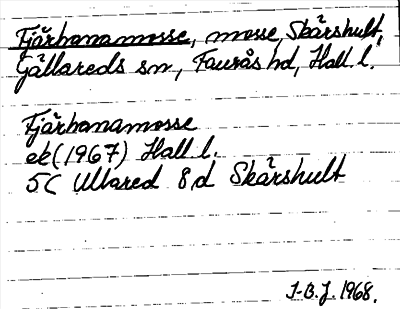 Fjärhanamosse, mosse, Skärshult,
Gällareds sn, Faurås hd, Hall. l.
Fjärhanamosse
ek (1967) Hall. l.
5C Ullared 8d Skärshult
I-B.J. 1968.